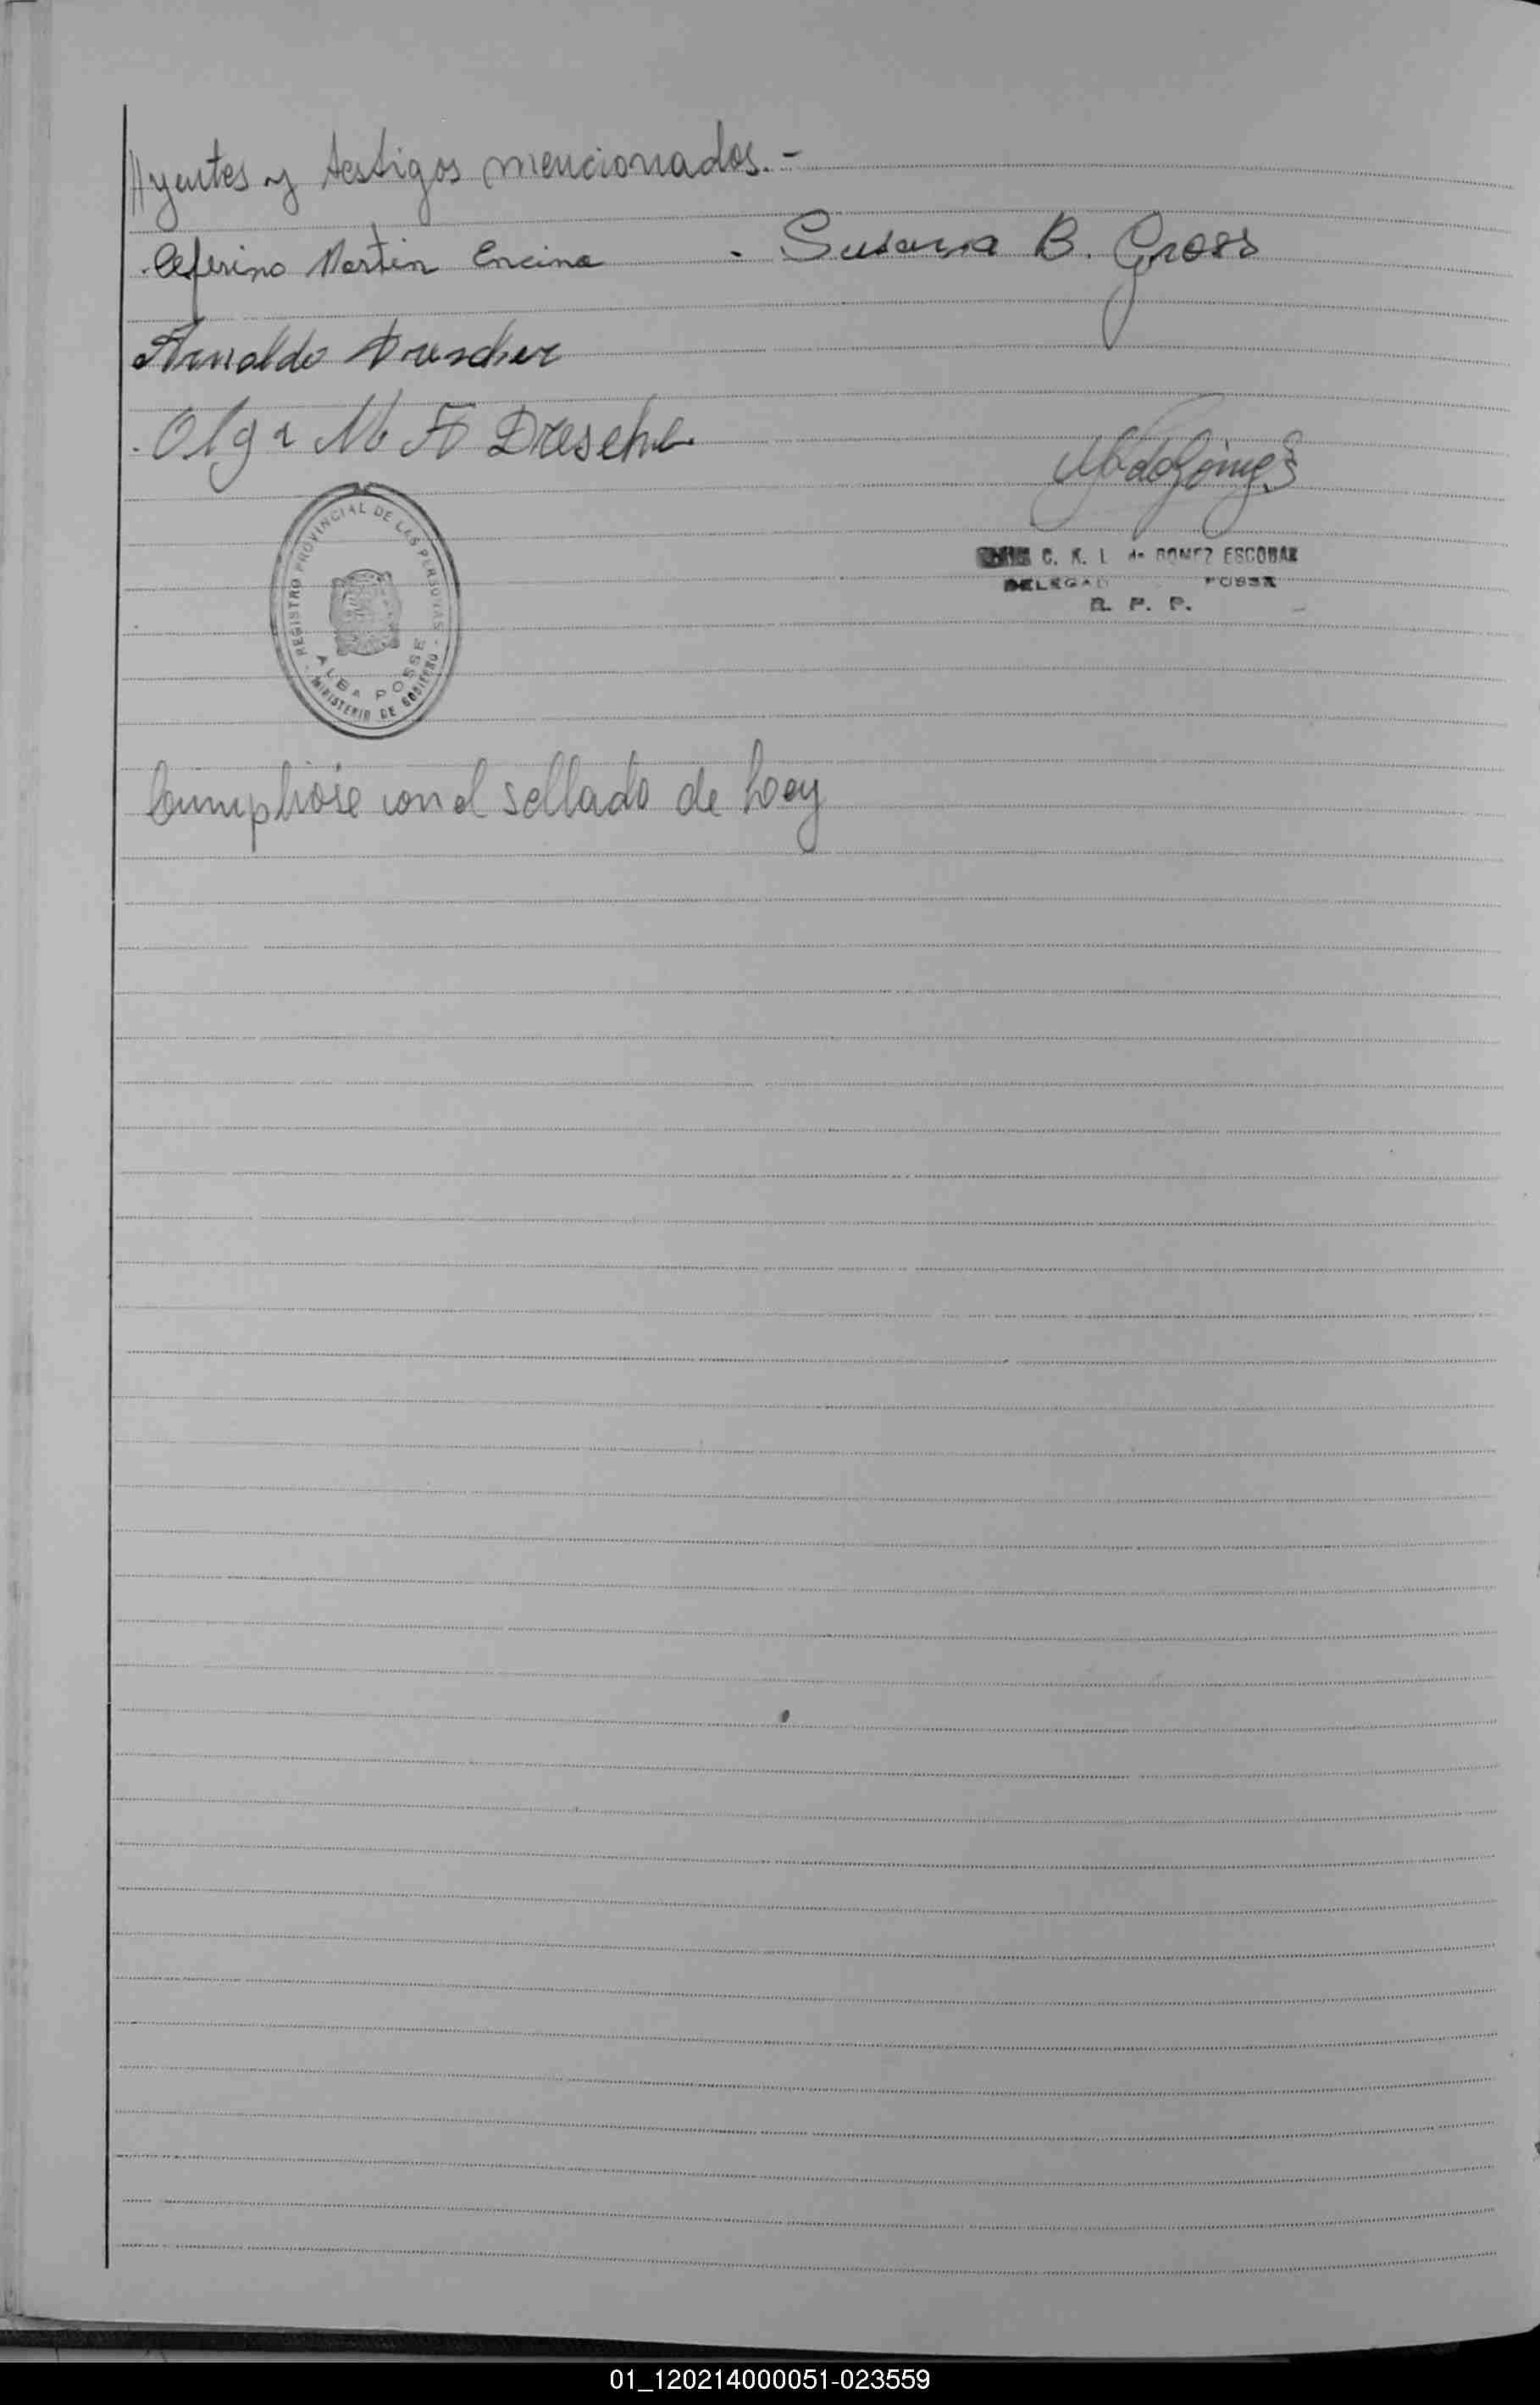 yentes y testigos mencionados.-
Ceferino Martin Encina - Susana B. Gross
Arnoldo Drescher
Olga M. Dresche
REGISTRO PROVINCIAL DE LAS PERSONAS
ALBA POSSE
MINISTERIO DE GOBIERNO
C. K. I. de GOMEZ ESCOBAR
DELEGAD POSSE
R. P. P.
Cumplióse con el sellado de Ley
01_120214000051-023559